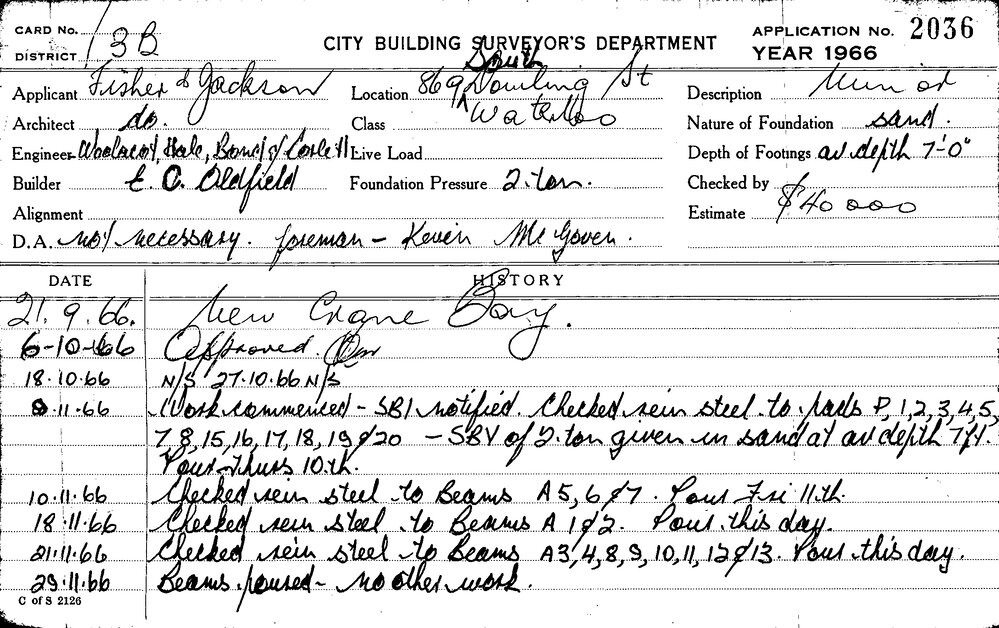 CARD No.
DISTRICT 13B
CITY BUILDING SURVEYOR'S DEPARTMENT
APPLICATION No. 2036
YEAR 1966
Applicant Fisher & Jackson
Location 869 South Dowling St
Waterloo
Description
Architect do.
Class
Nature of Foundation sand.
Engineer Woolacot, Hale, Bond & Corlett
Live Load
Depth of Footings av depth 7'-0"
Builder E. C. Oldfield
Foundation Pressure 2. ton.
Checked by
Alignment
Estimate $40 000
D.A. not necessary. foreman - Kevin McGoven.
DATE
HISTORY
21.9.66. New Crane Bay.
6-10-66 Approved.
18.10.66 N/S 27.10.66 N/S
9.11.66 Work commenced - SBI notified. Checked rein steel to pads P, 1, 2, 3, 4, 5,
7, 8, 15, 16, 17, 18, 19 & 20 - SBV of 2. ton given in sand at av depth 7ft.
Pour Thurs 10.th.
10.11.66 Checked rein steel to Beams A 5, 6 & 7. Pour Fri 11.th.
18.11.66 Checked rein steel to Beams A 1 & 2. Pour this day.
21.11.66 Checked rein steel to Beams A3, 4, 8, 9, 10, 11, 12 & 13. Pour this day.
29.11.66 Beams poured - no other work.
C of S 2126